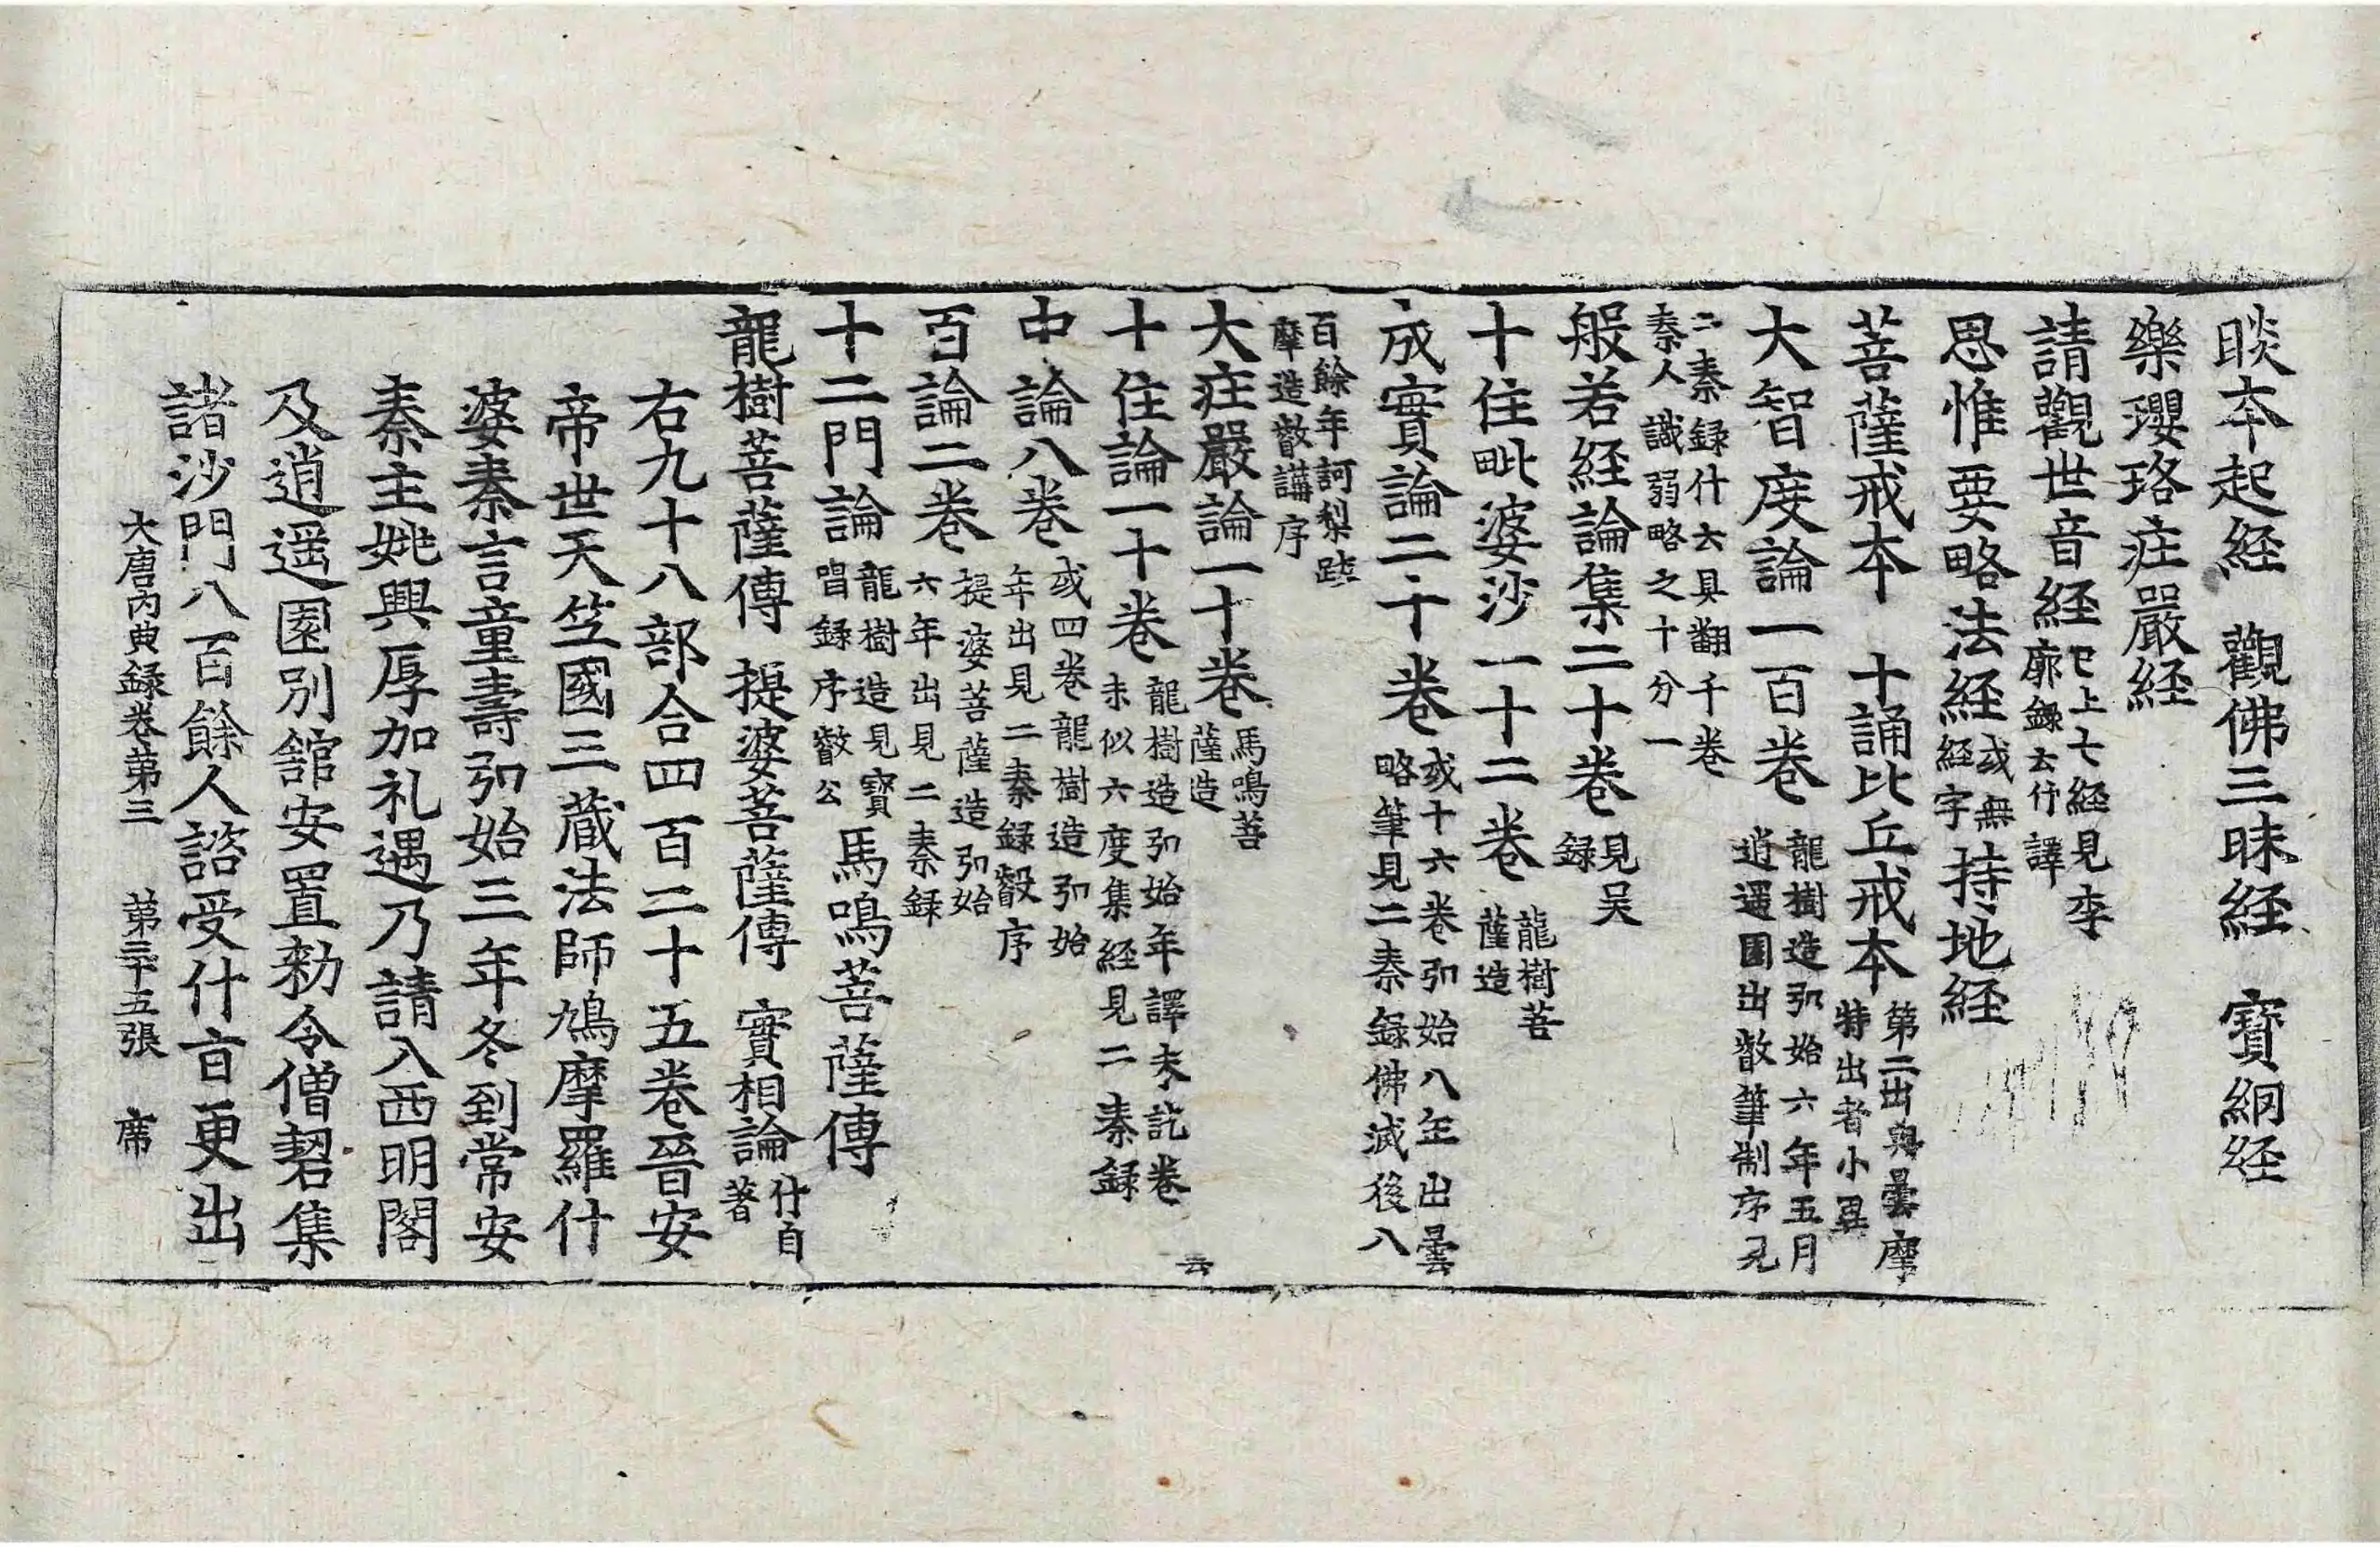 睒本起経　觀佛三昧経　寶網経
樂瓔珞疘嚴経
請觀世音経 巳上七経見李廓録云什譯
思惟要略法経 或無経字 持地経
菩薩戒本　十誦比丘戒本 第二出與曇摩特出者小異
大智度論一百卷 龍樹造弘始六年五月逍遥園出叡筆制序見
二秦録什云具翻千卷秦人識弱略之十分一
般若経論集二十卷 見吴録
十住毗婆沙一十二卷 龍樹菩薩造
成實論二十卷 或十六卷弘始八年出曇略筆見二秦録佛滅後八
百餘年訶梨跋摩造叡講序
大疘嚴論一十卷 馬鳴菩薩造
十住論一十卷 龍樹造弘始年譯未訖卷未似六度集経見二秦録 云
中論八卷 或四卷龍樹造弘始年出見二秦録叡序
百論二卷 提婆菩薩造弘始六年出見二秦録
十二門論 龍樹造見寶唱録序叡公 馬鳴菩薩傳
龍樹菩薩傳　提婆菩薩傳　實相論 什自著
右九十八部合四百二十五卷晉安
帝世天竺國三蔵法師鳩摩羅什
婆秦言童壽弘始三年冬到常安
秦主姚興厚加礼遇乃請入西明閣
及逍遥園別舘安置勑令僧䂮集
諸沙門八百餘人諮受什㫖更出
大唐内典録卷第三　第三十五張　席